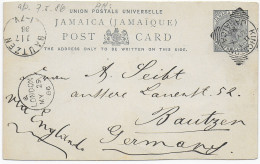 UNION POSTALE UNIVERSELLE
JAMAICA (JAMAÏQUE)
POST CARD
THE ADDRESS ONLY TO BE WRITTEN ON THIS SIDE.
BAUTZEN
LONDON
Herrn A. Seibt
äussere Lauenstr. 52.
Bautzen
Via England
Germany